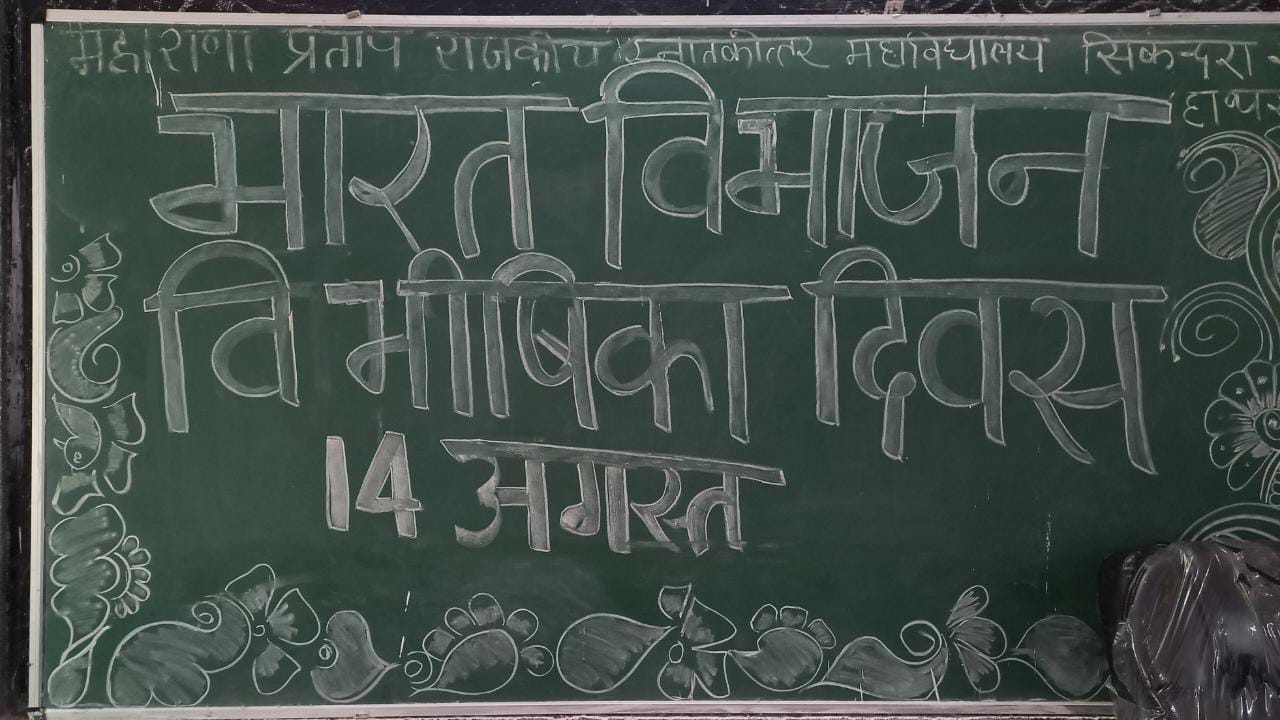 महाराणा प्रताप राजकीय स्नातकोत्तर महाविद्यालय सिकन्दरा
भारत विभाजन
विभीषिका दिवस
14 अगस्त